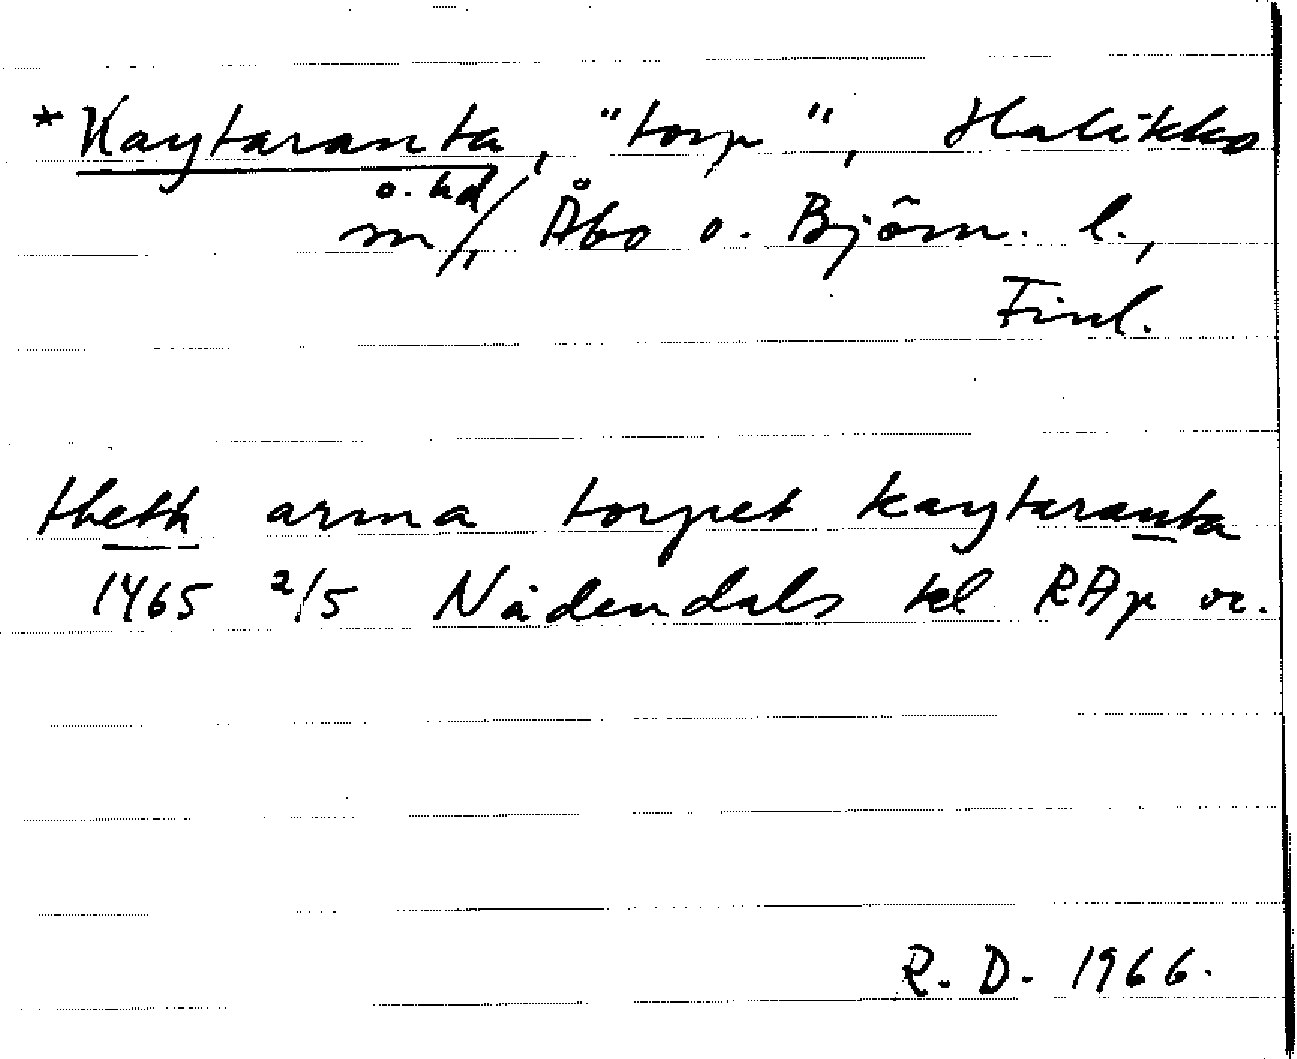 *Kaytaranta, "torp", Halikko
sn o. hd, Åbo o. Björn. l.,
Finl.
theth arma torpet kaytaranta
1465 2/5 Nådendals kl RAp or.
R. D. 1966.